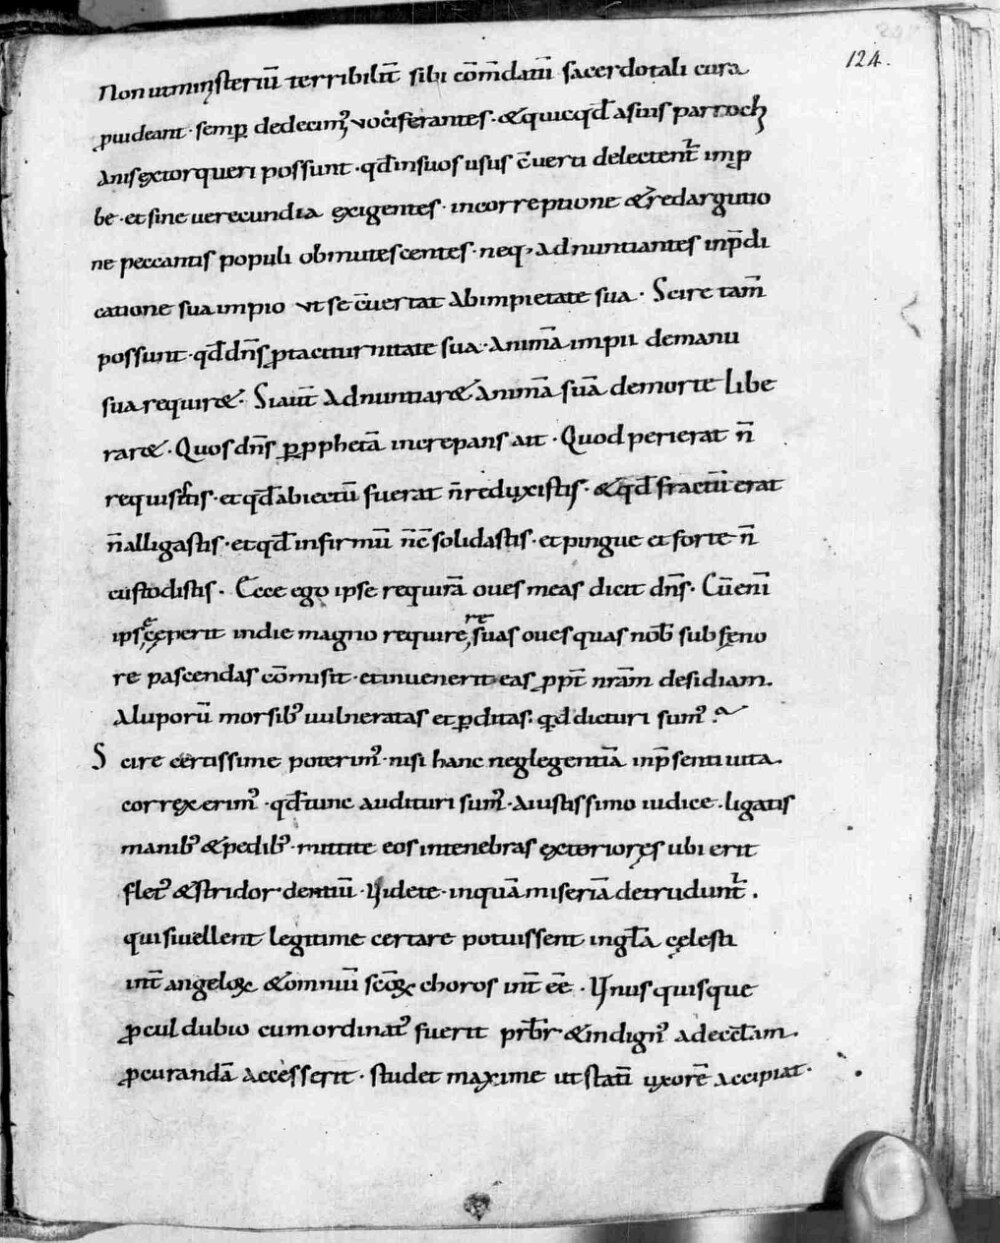 124.
Non utminysteriū terribilit̄ sibi cōm̄datū sacerdotali cura
ꝓuideant · semꝑ dedecim᾽ vociferantes · &quicqd̄ asuis parroch
Anis extorqueri possunt · qd̄ insuos usus c̄uerti delectent̄ imꝓ
be · et sine uerecundia exigentes · incorreptione & redargutio
ne peccantis populi obmutescentes · neq, adnuntiantes inp̄di
catione sua impio vt se c̄uertat Abimpietate sua · Scire tam̄
possunt · qd̄ dn̄s ꝓ taciturnitate sua · Animā impii demanu
sua requir& · Si aut̄ Adnuntiar& Animā suā demorte Libe
rar& · Quos dn̄s ꝑ ꝓphetā increpans ait · Quod perierat n̄
requisistis · et qd̄ abiectū fuerat n̄ reduxistis · & qd̄ fractū erat
n̄ alligastis · et qd̄ infirmū n̄c̄solidastis · et pingue et forte n̄
custodistis · Ecce ego ipse requirā oues meas dicit dn̄s · Cū eni
ipse ceperit indie magno requirere suas oues quas nob᾽ sub feno
re pascendas cōmisit · et inuenerit eas ꝓpt̄ nrām desidiam.
Aluporū morsib᾽ uulneratas et ꝑditas · qd̄ dicturi sum᾽ ?
Scire certissime poterim᾽ · nisi hanc neglegentiā inp̄senti uita.
correxerim᾽ · qd̄ tunc audituri sum᾽ · Aiustissimo iudice · ligatis
manib᾽ & pedib᾽ · mittite eos intenebras exteriores ubi erit
flet᾽ & stridor dentiū · Videte · inquā miseriā detrudunt̄ .
qui si uellent legitime certare potuissent ingl̄a celesti
int̄ angeloꝝ & omniū sc̄oꝝ choros int̄ēē · Vnus quisque
ꝓcul dubio cum ordinat᾽ fuerit prb̄r & indign᾽ ad eccl̄am ·
ꝓcurandā Accesserit · studet maxime ut statī uxorē Accipiat ·